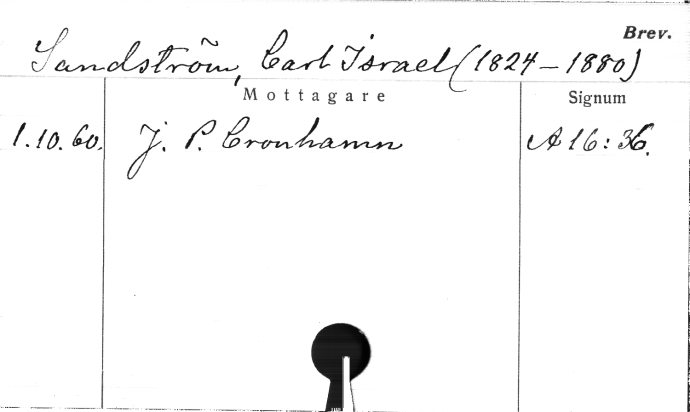 Brev.
Sandström, Carl Israel (1824-1880)
Mottagare Signum
1.10.60. J. P. Cronhamn A 16:36.